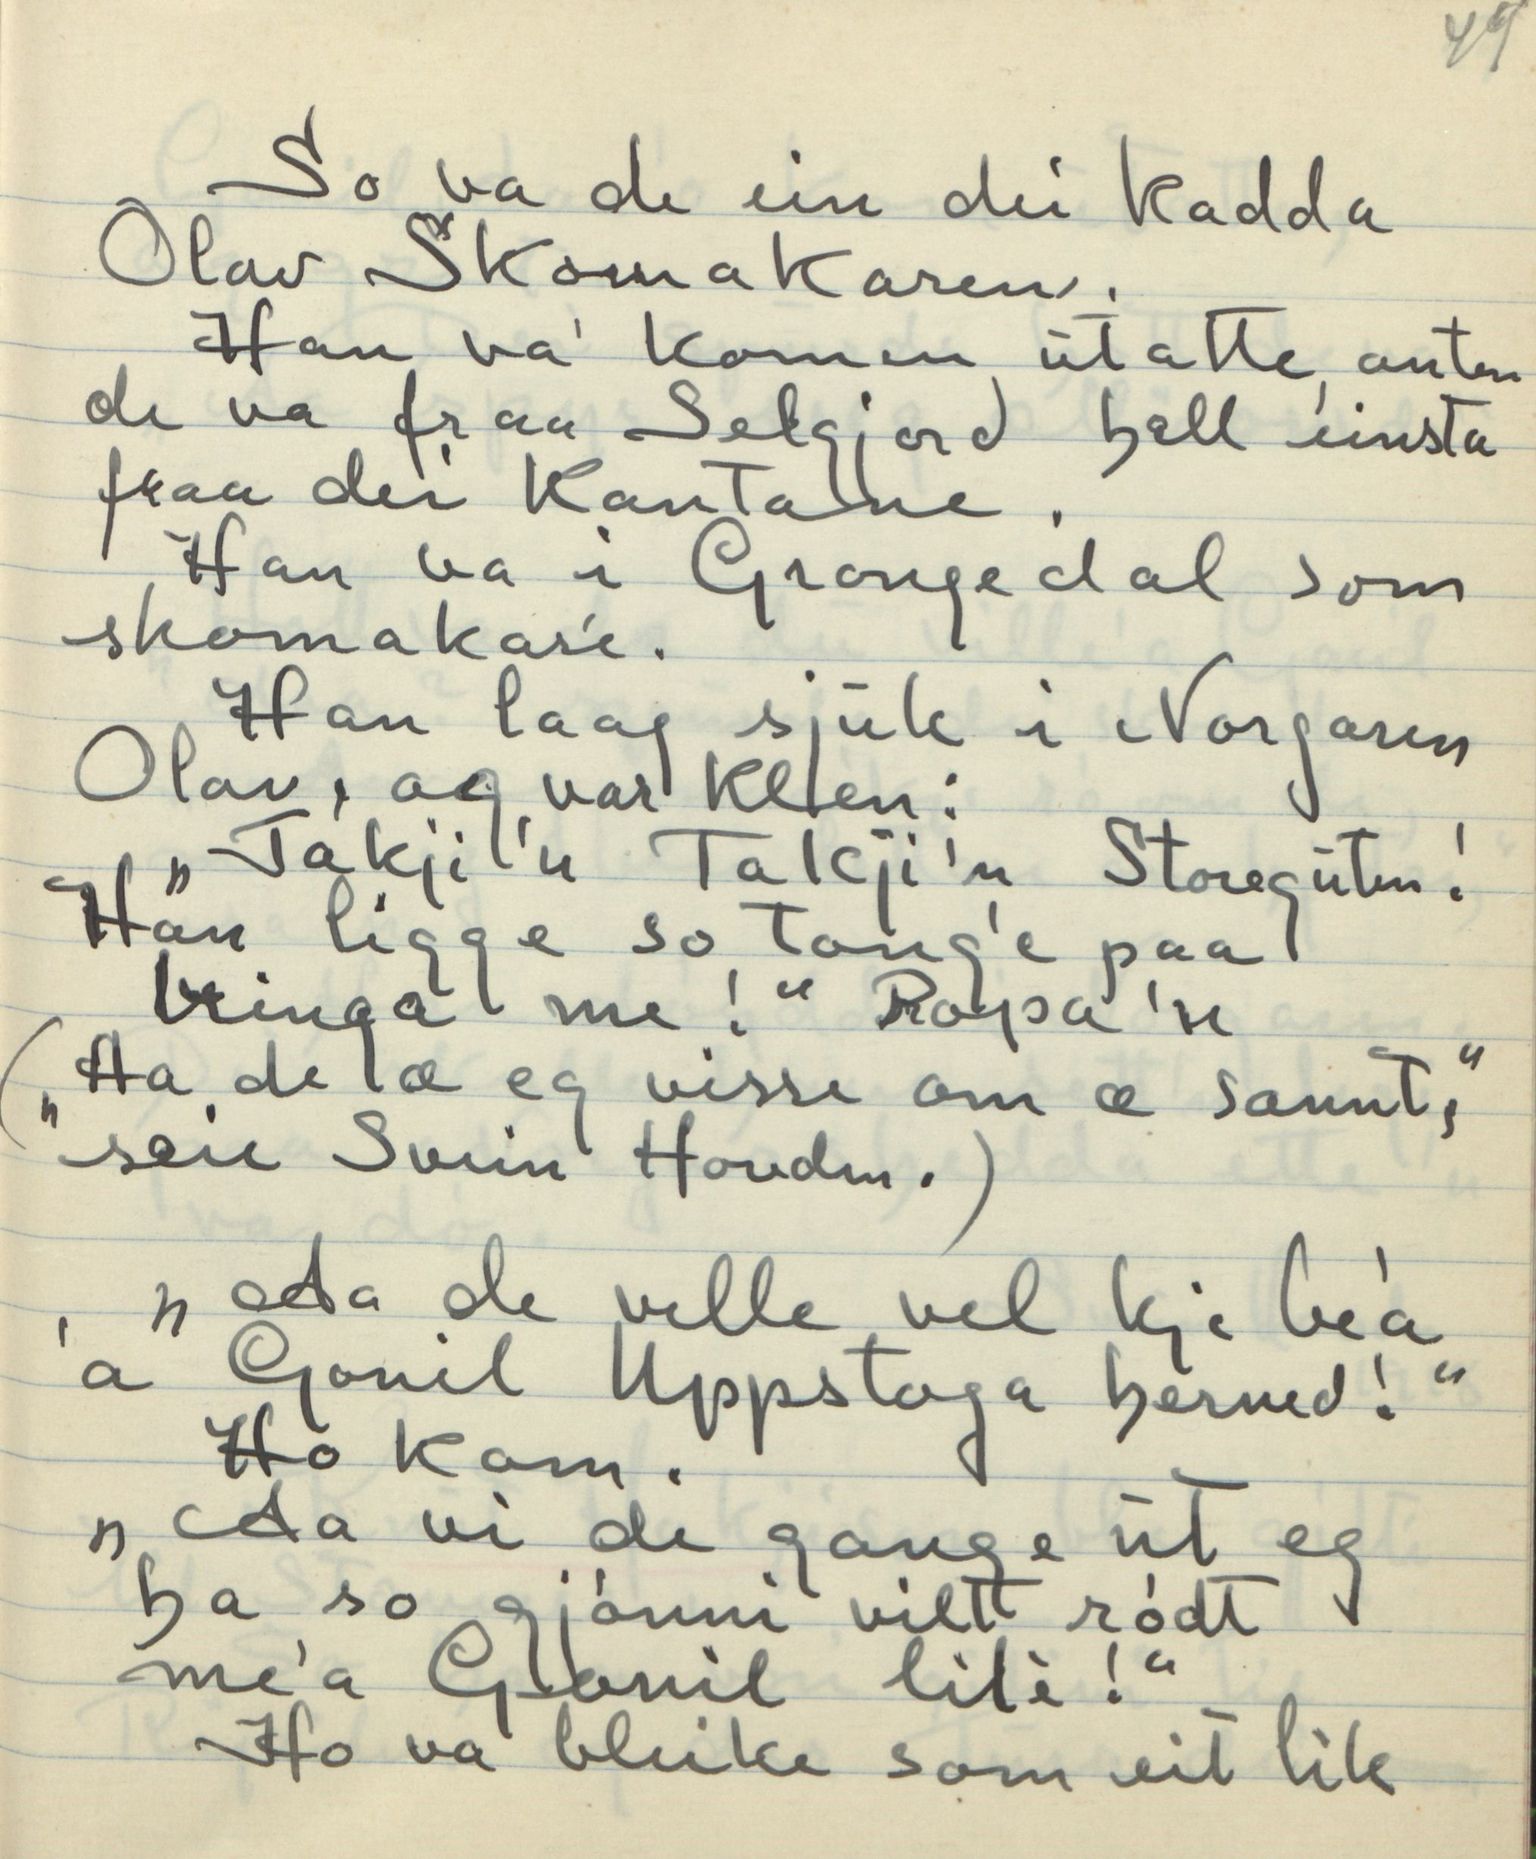 49
So va de ein dei kadda
Olav Skomakaren.
Han va' komen ūtatte, anten
de va fraa Selgjord hell einsta
fraa dei kantane.
Han va i Grongedal som
skomakare.
Han laag sjūk i Norgaren
Olav, og var klen:
„Takji'n Takji'n Storegūten!
Han ligge so tong'e paa
bringa me!“ Roypa'n
(„Aa de æ eg visse om æ sannt,“
seie Svein Hovden.)
„Aa de velle vel kje be'a
'a Gonil Uppstoga herned!“
Ho kom.
„Aa vi de gange ūt eg
ha so gjónni viltródt
me'a Gonil litè!“
Ho va bleike som eit lik